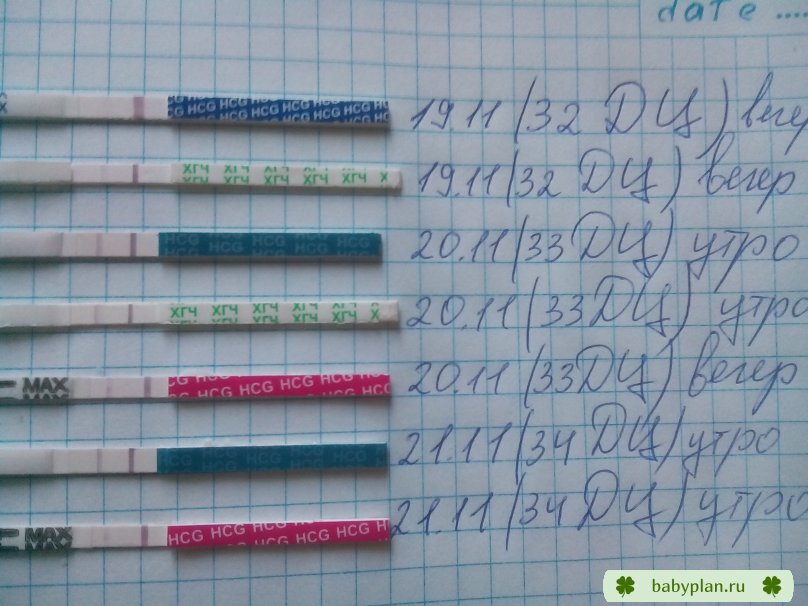 date ....
HCG HCG HCG HCG HCG 19.11 (32 ДЦ) вечер
ХГЧ ХГЧ ХГЧ ХГЧ ХГЧ Х 19.11 (32 ДЦ) вечер
HCG HCG HCG HCG HCG 20.11 (33 ДЦ) утро
ХГЧ ХГЧ ХГЧ ХГЧ ХГЧ Х 20.11 (33 ДЦ) утро
MAX HCG HCG HCG HCG HCG 20.11 (33 ДЦ) вечер
HCG HCG HCG HCG HCG 21.11 (34 ДЦ) утро
MAX HCG HCG HCG HCG HCG 21.11 (34 ДЦ) утро
babyplan.ru